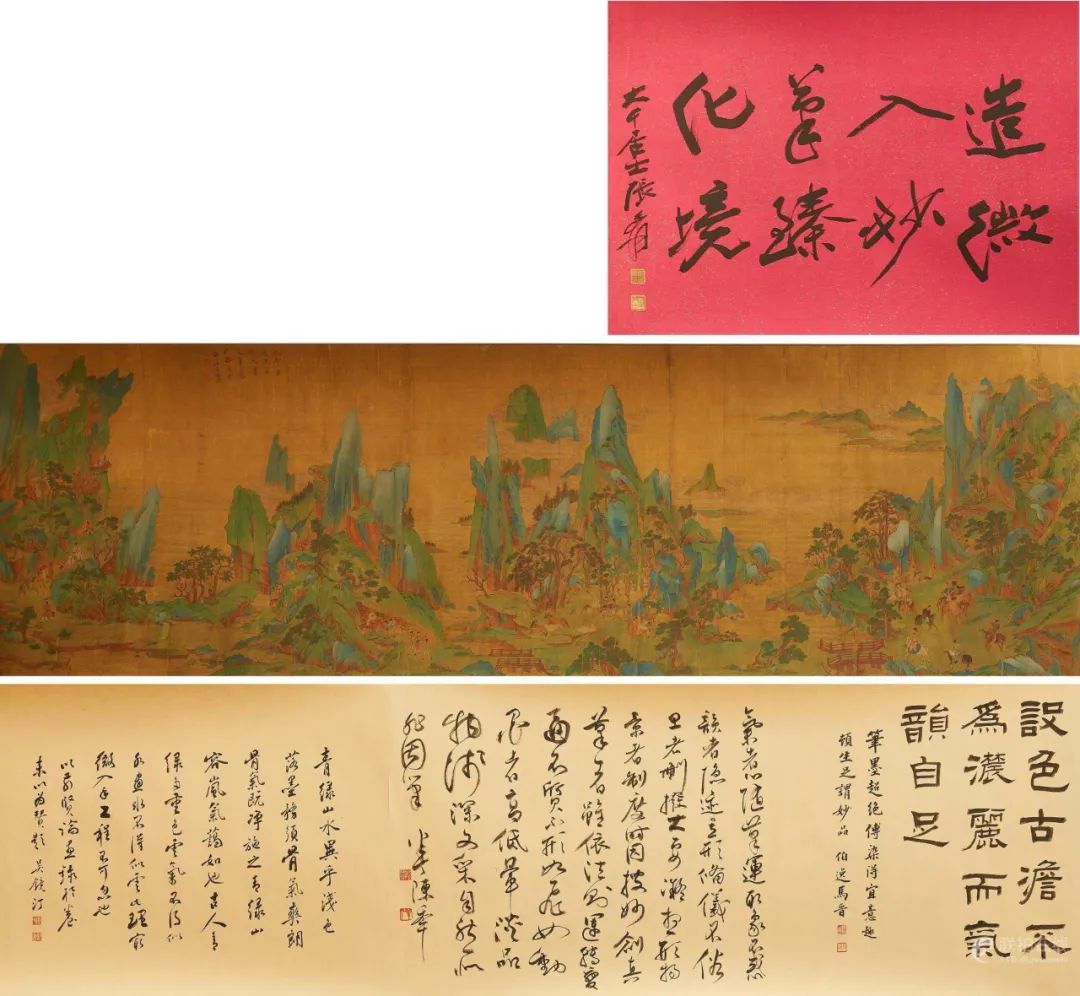 造微
入妙
筆臻
化境
大千居士張爰
設色古澹不
爲濃麗而氣
韻自足
筆墨超絕傅染得宜意趣
頓生足謂妙品 伯逸馬晉
氣者心隨筆運取象不惑
韻者隱迹立形備儀不俗
思者刪撥大要凝想形物
景者制度時因搜妙創真
筆者雖依法則運轉變
通不質不形如飛如動
墨者高低暈淡品
物淺深文采自然似
非因筆 半丁陳年
青綠山水異乎淺色
落墨務須骨氣爽朗
骨氣既淨施之青綠山
容嵐氣藹如也古人青
綠多重色雲氣不得似
水畫水不得似雲此理最
微入手工程不可忽也
以前賢論畫錄於卷
末以為贊題 吳鏡汀